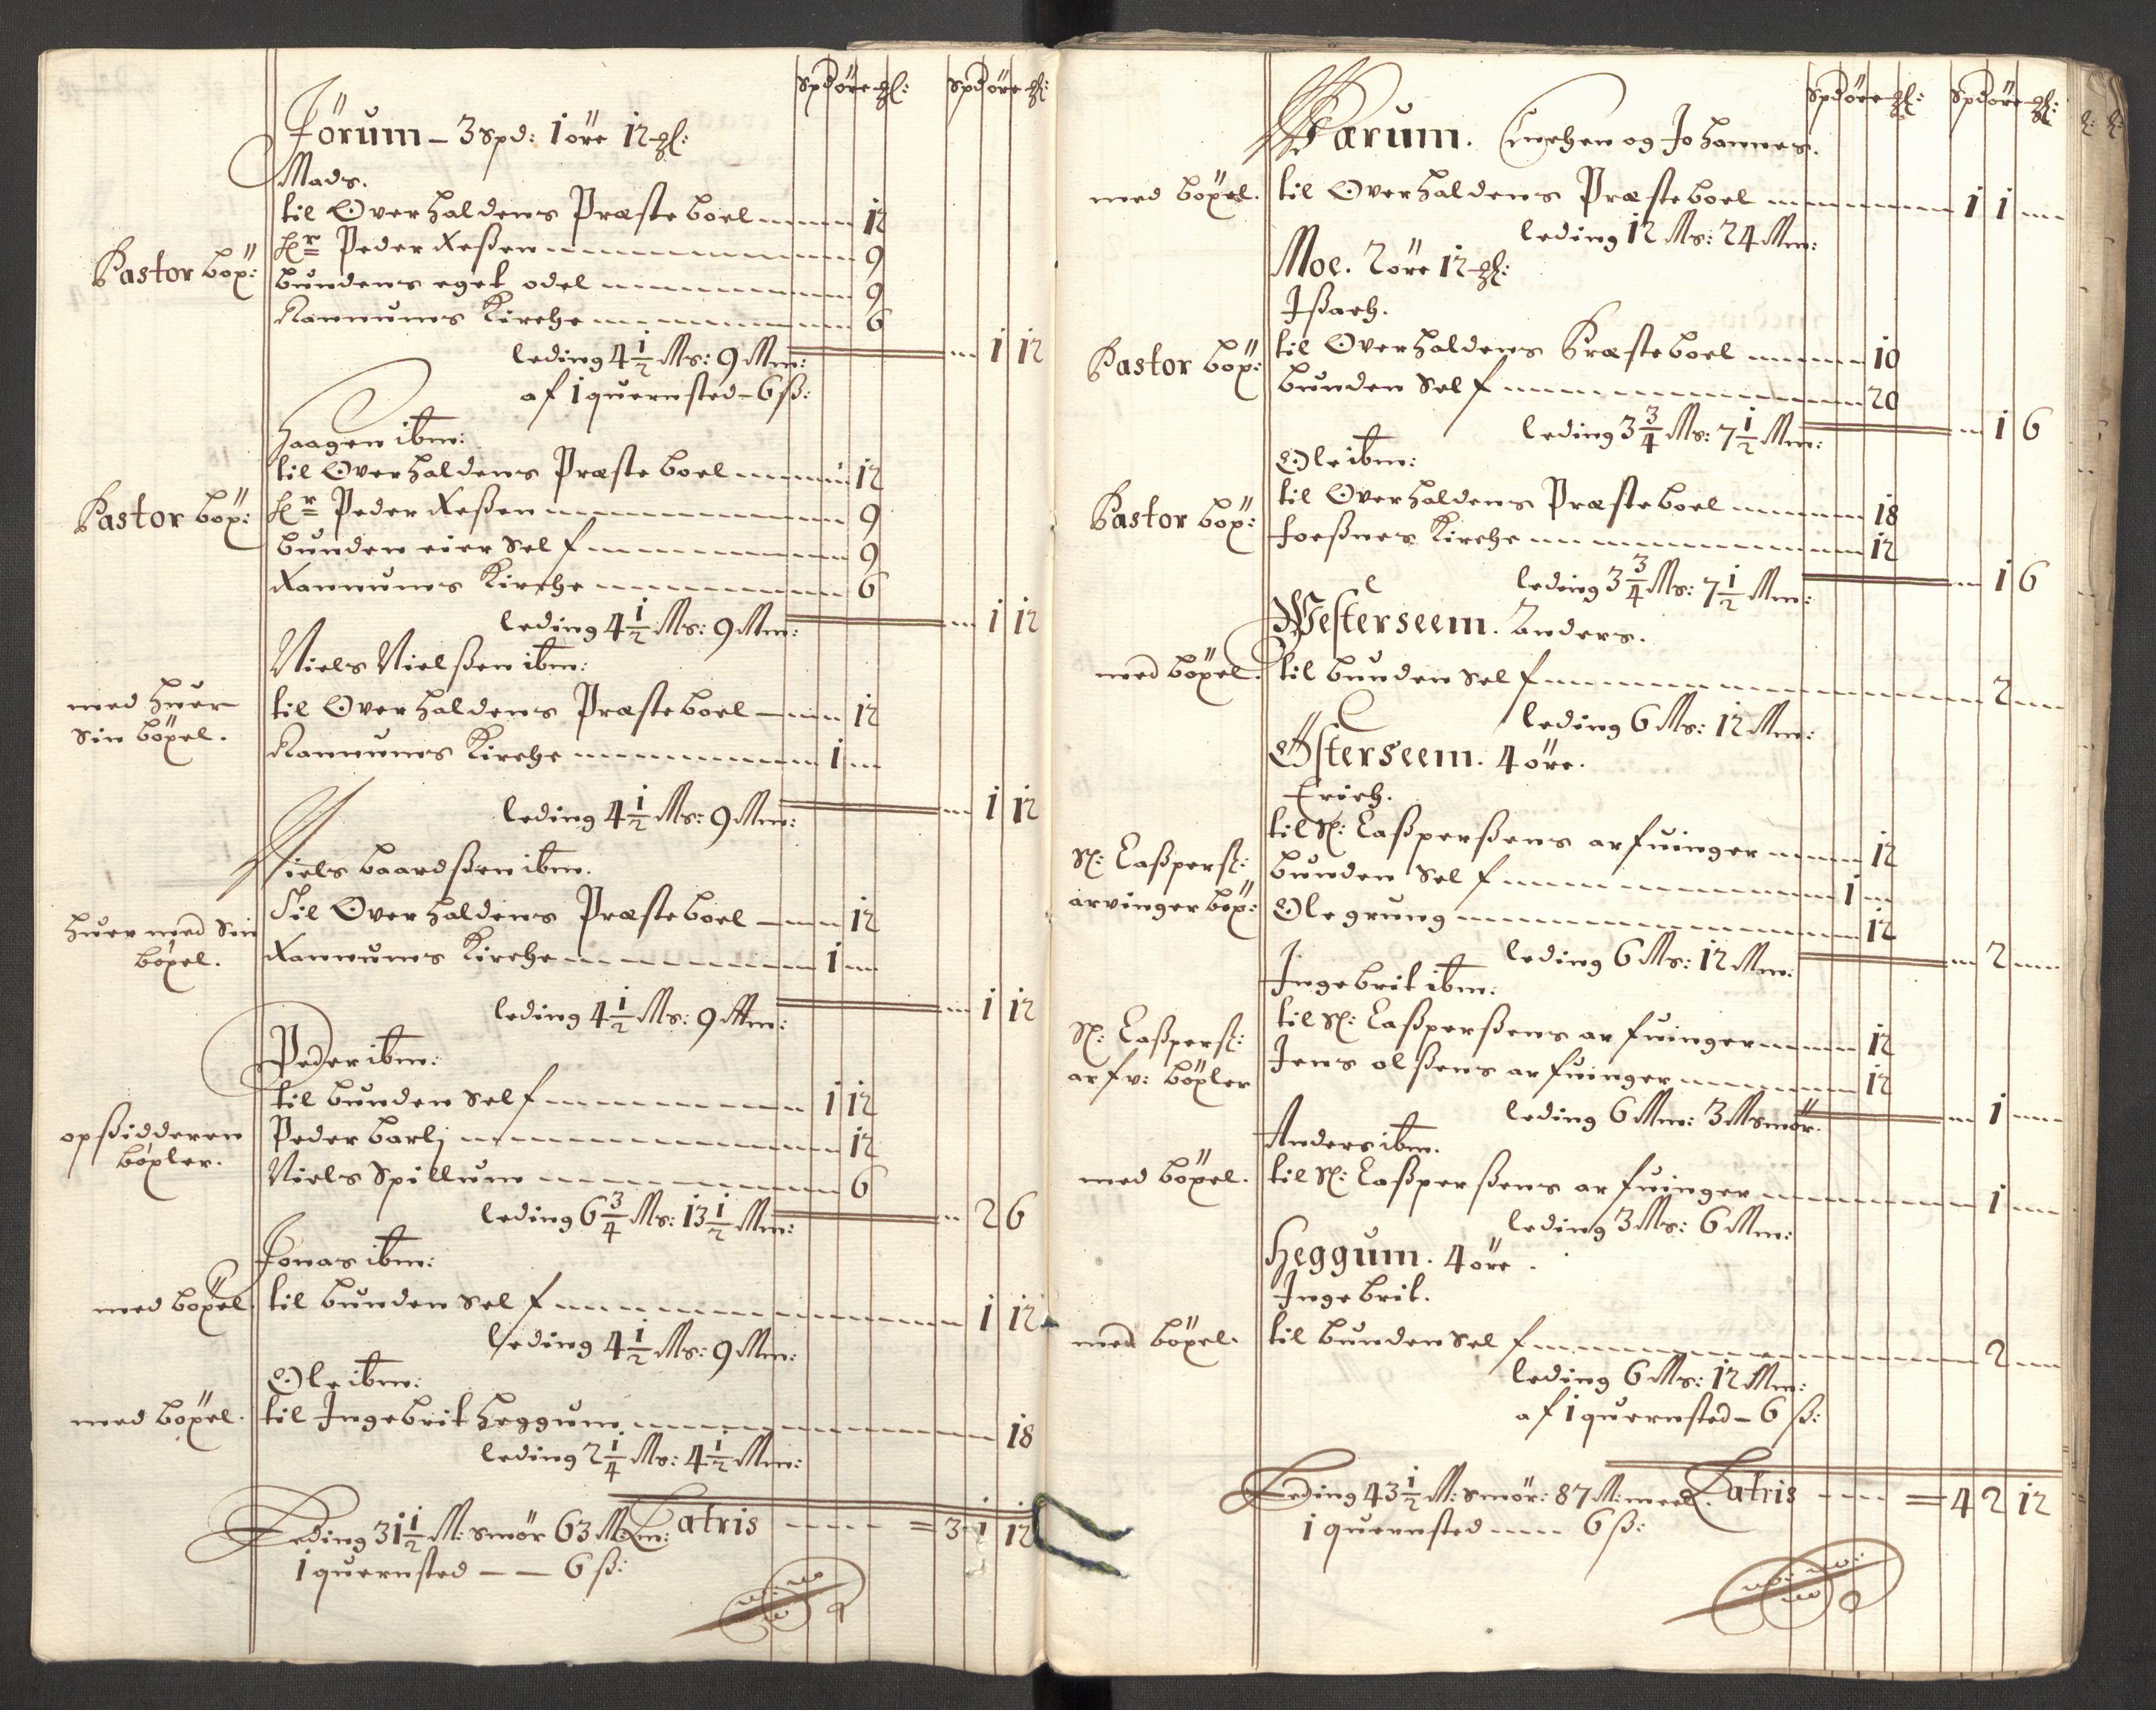 Spd öre ℳ: Spd öre ℳ:
Jörum – 3 Spd: 1 öre 12 ℳ:
Mads.
til Overhaldens Præsteboel 12
Pastor böx: Hr Peder Jessen 9
bundens eget odel 9
Ranumbs Kirche 6
leding 4 1/2 Ms: 9 Mm: 1 12
af 1 quernsted – 6 ß:
Haagen ibm:
til Overhaldens Præsteboel 12
Pastor böx: Hr Peder Jessen 9
bunden eier self 9
Ranumbs Kirche 6
leding 4 1/2 Ms: 9 Mm: 1 12
Niels Nielssen ibm:
med huer sin böxel. til Overhaldens Præsteboel 12
Ranumbs Kirche 1
leding 4 1/2 Ms: 9 Mm: 1 12
Niels baardssen ibm.
huer med sin böxel. Til Overhaldens Præsteboel 12
Ranumbs Kirche 1
leding 4 1/2 Ms: 9 Mm: 1 12
Peder ibm:
til bunden self 1 12
opsidderen böxler. Peder barlj 12
Niels Spillum 6
leding 6 3/4 Ms: 13 1/2 Mm: 2 6
Jonas ibm:
med böxel. til bunden self 1 12
leding 4 1/2 Ms: 9 Mm:
Ole ibm:
med böxel. til Ingebrit heggum 18
leding 2 1/4 Ms: 4 1/2 Mm:
Leding 31 1/2 M: smör 63 Mm: Latris = 3 1 12
1 quernsted — 6 ß:
Spd öre ℳ: Spd öre ℳ:
Warum. Enchen og Johannes.
med böxel. til Overhaldens Præsteboel 1 1
leding 12 Ms: 24 Mm:
Moe. 2 öre 12 ℳ:
Issach.
Pastor böx: til Overhaldens Præsteboel 10
bunden self 20
leding 3 3/4 Ms: 7 1/2 Mm: 1 6
Ole ibm:
Pastor böx: til Overhaldens Præsteboel 18
foessnes Kirche 12
leding 3 3/4 Ms: 7 1/2 Mm: 1 6
Westerseem. Anders.
med böxel. til bunden self 2
leding 6 Ms: 12 Mm:
Østerseem. 4 öre.
Erich.
til Sl: Casperssens arfuinger 12
Sl: Caspers: arvinger böx: bunden self 1
Ole grung 12
leding 6 Ms: 12 Mm: 2
Ingebrit ibm:
til Sl: Casperssens arfuinger 12
Sl: Caspers: arfv: böxler Jens olssens arfuinger 12
leding 6 Mm: 3 M smör. 1
Anders ibm.
med böxel. til Sl: Casperssens arfuinger 1
leding 3 Ms: 6 Mm:
Heggum. 4 öre.
Ingebrit.
med böxel. til bunden self 2
leding 6 Ms: 12 Mm:
af 1 quernsted – 6 ß:
Leding 43 1/2 M: smör: 87 M: meel. Latris = 4 2 12
1 quernsted — 6 ß: